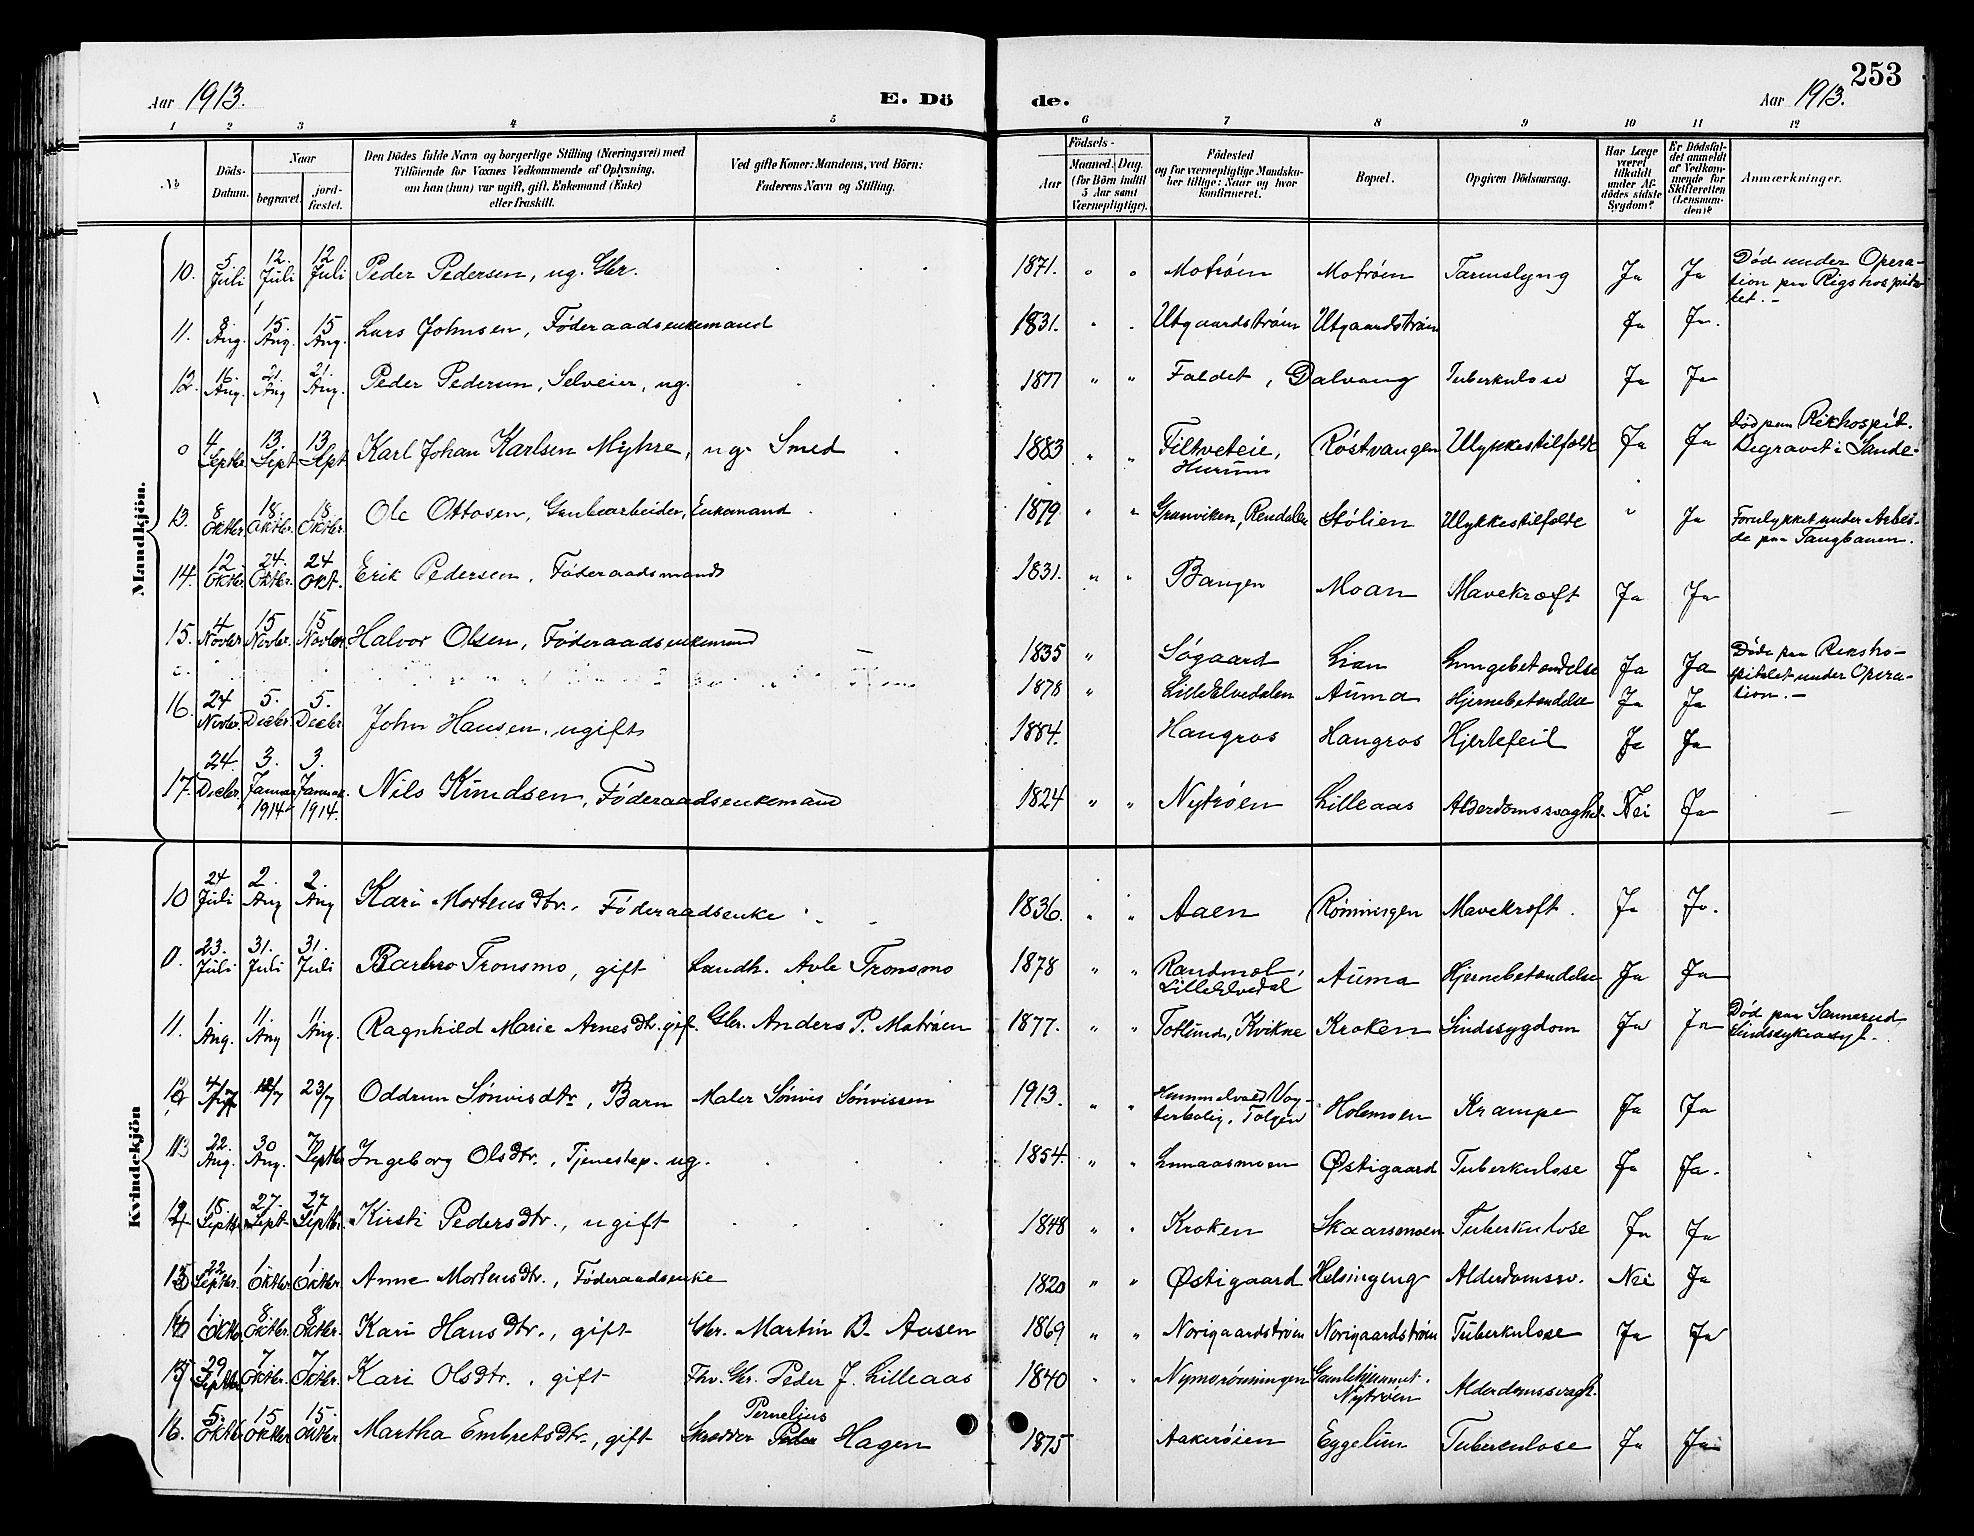 253
Aar 1913. E. Dö de. Aar 1913.
1 2 3 4 5 6 7 8 9 10 11 12
№ Döds-Datum. Naar begravet. jord-fæstet. Den Dödes fulde Navn og borgerlige Stilling (Næringsvei) med Tilföiende for Voxnes Vedkommende af Oplysning, om han (hun) var ugift, gift, Enkemand (Enke) eller fraskilt. Ved gifte Koner: Mandens, ved Börn: Faderens Navn og Stilling. Födsels- Aar Maaned. Dag. (for Börn indtil 5 Aar samt Værnepligtige). Födested og for værnepligtige Mandskaber tillige: Naar og hvor konfirmeret. Bopæl. Opgiven Dödsaarsag. Har Læge været tilkaldt under Afdödes sidste Sygdom? Er Dödsfaldet anmeldt af Vedkommende for Skifteretten (Lensmanden)? Anmærkninger.
Mandkjön.
10. 5 Juli 12. Juli 12 Juli Peder Pedersen, ug. Gbr. 1871. " " Motrøen Motrøen Tarmslyng Ja Ja Død under Operation paa Rigshospitalet. -
11. 8 Aug. 15 Aug. 15 Aug. Lars Johnsen, Føderaadsenkemand 1831. " " Utgaardstrøen Utgaardstrøen Ja Ja.
12. 16. Aug. 21. Aug 21. Aug. Peder Pedersen, Selveier, ug. 1877 " " Faldet, Dalvang Tuberkulose Ja Ja
0 4 Septbr. 13. Sept 13 Sept Karl Johan Karlsen Myhre, ug. Smed 1883 " " Filtveteie, Hurum Røstvangen Ulykkestilfælde Ja Ja Død paa Rikhospit. Begravet i Sande.
13. 8 Oktbr. 18. Oktbr. 18. Oktbr. Ole Ottosen, Grubearbeider, Enkemand 1879 " " Granviken, Rendalen Stølien Ulykkestilfelde " Ja Forulykket under Arbeide paa Taugbanen.
14. 12 Oktbr. 24. Oktbr. 24 Okt. Erik Pedersen, Føderaadsmand 1831. " " Bangen Moan Mavekræft Ja Ja
15. 4 Novbr 15 Novbr. 15 Novbr. Halvor Olsen, Føderaadsenkemand 1835 " Søgaard Lian Lungebetændelse Ja Ja Døde paa Reksho-
1878 " Lille Elvedalen Auma Hjernebetændelse Ja Ja spitalet under Operation. -
16. 24 Novbr. 5. Decbr. 5. Decbr John Hansen, ugift 1884. Hangros Hangros Hjertefeil Ja Ja
17. 24. Decbr. 3. Januar 1914 3. Januar 1914. Nils Knudsen, Føderaadsenkemand 1824 " " Nytrøen Lilleaas Alderdomssvaghed. Nei Ja
Kvindekjön
10 24 Juli 2. Aug 2. Aug Kari Mortensdtr. Føderaadsenke 1836. " " Aaen Rønningen Mavekræft. Ja Ja.
0. 23. Juli 31. Juli 31. Juli Barbro Tronsmo, gift Landh. Avle Tronsmo 1878 " " Randmol, Lille Elvedal Auma Hjernebetændelse Ja Ja
11. 1 Aug. 11. Aug 11 Aug. Ragnhild Marie Arnesdtr. gift. Gbr. Anders P. Motrøen 1877. " " Totlund, Kvikne Kroken Sindssygdom Ja Ja Død paa Sannerud Sindssykeasyl.
4/7 23/7 Oddrun Sønvisdtr, Barn Maler Sønvis Sønvissen 1913. " " Hummelvold Vogterbolig, Tolgen Holmoen Krampe Ja Ja
13 22. Aug. 30 Aug. 7 Septbr Ingeborg Olsdtr., Tjenestep. ug. 1854. " " Lunaasmoen Østigaard Tuberkulose Ja Ja.
18. Septbr. 27. Sept 27. Septbr. Kirsti Pedersdtr., ugift 1848 " " Kroken Skaarsmoen Tuberkulose Ja Ja
22. Septbr. 1 Oktbr 1 Oktbr. Anne Mortensdtr., Føderaadsenke 1820 " " Østigaard Helsingeng Alderdomssv. Nei Ja
1 Oktbr. 8 Oktbr. 8 Oktbr. Kari Hansdtr., gift Gbr. Martin B. Aasen 1869 " " Norigaardstrøen Norigaardstrøen Tuberkulose Ja Ja
29 Septbr. 7 Oktbr. 7 Oktbr. Kari Olsdtr., gift Fhv. Gbr. Peder J. Lilleaas 1840 " " Nymorønningen Gamlehjemmet, Nytrøen Alderdomssvagh.
16. 5. Oktbr 15 Oktbr 15. Oktbr. Martha Embretsdtr., gift Skrædder Pernelius Hagen 1875 Aakerøien Eggelien Tuberkulose Ja Ja